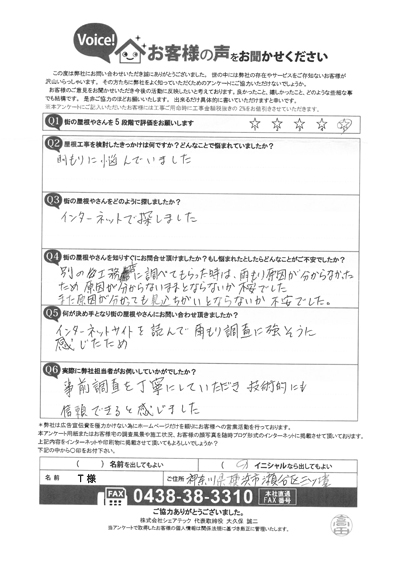 Voice!
お客様の声をお聞かせください
この度は弊社にお問い合わせいただき誠にありがとうございました。世の中には弊社の存在やサービスをご存知ないお客様が
沢山いらっしゃいます。その方たちに弊社をよく知っていただくためのアンケートにご協力いただけないでしょうか。
お客様のご意見をお聞かせいただき今後の活動に反映したいと考えております。良かったこと、嬉しかったこと、どのような些細な事
でも結構です。是非ご協力のほどお願いします。出来るだけ具体的に書いていただけますと幸いです。
※本アンケートにご記入いただいたお客様には工事ご用命時に工事金額税抜きの2%をお値引きさせていただきます。
Q1 街の屋根やさんを5段階で評価をお願いします ☆ ☆ ☆ ☆ ☆
Q2 屋根工事を検討したきっかけは何ですか?どんなことで悩まれていましたか?
雨もりに悩んでいました
Q3 街の屋根やさんをどのように探しましたか?
インターネットで探しました
Q4 街の屋根やさんを知りすぐにお問合せ頂けましたか?もし悩まれたとしたらどんなことがご不安でしたか?
別の 工務 に調べてもらった時は、雨もり原因が分からなかった
ため 原因が分からないままとならないか不安でした
また原因が分かっても見込ちがいとならないか 不安でした。
Q5 何が決め手となり街の屋根やさんにお問い合わせ頂きましたか?
インターネットサイトを読んで雨もり調査に強そうに
感じたため
Q6 実際に弊社担当者がお伺いしていかがでしたか?
事前調査を丁寧にしていただき 技術的にも
信頼できると感じました
※弊社は広告宣伝費を極力かけない為にホームページだけを頼りにお客様への営業活動を行っております。
本アンケート用紙またはお客様宅の調査風景や施工状況、お客様の顔写真を随時ブログ形式のインターネットに掲載させて頂いております。
上記内容をインターネットや印刷物に掲載させて頂いてもよろしいでしょうか?
下記の中から〇印をお付下さい。
( ) 名前を出してもよい (〇) イニシャルなら出してもよい
名前 T様 ご住所 神奈川県横浜市瀬谷区三ツ境
FAX 0438-38-3310 本社直通 FAX番号
ご協力ありがとうございました。
株式会社シェアテック 代表取締役 大久保 誠二
当アンケートで取得したお客様の個人情報は関係法規に基づき適正に管理いたします。